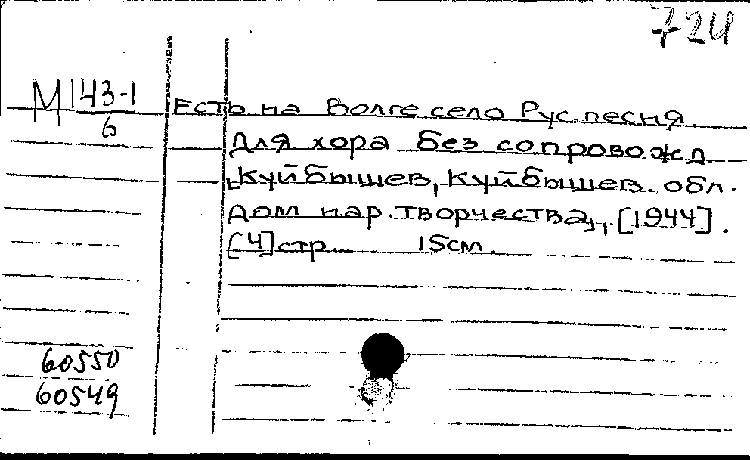 724
М 43-1
6
Есть на Волге село Рус. песня
для хора без сопровожд.
Куйбышев, Куйбышев. обл.
дом нар. творчества, [1944].
[4] стр. 15см.
60550
60549